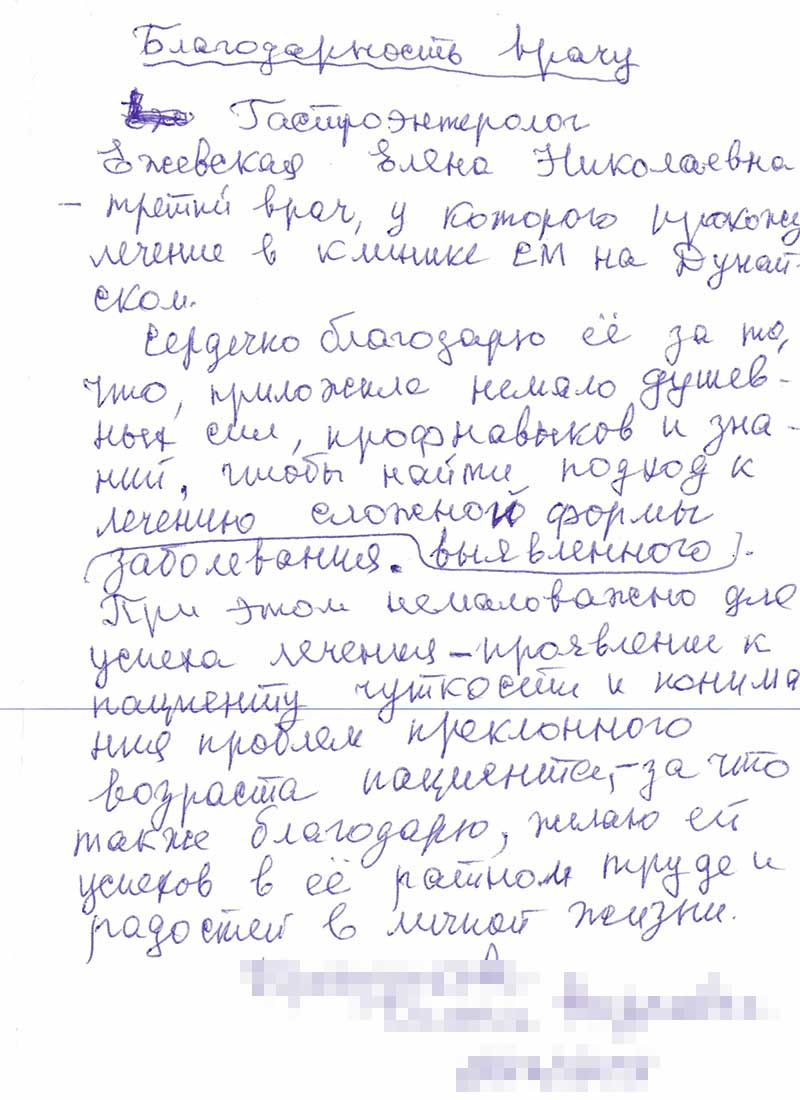 Благодарность врачу
Гастроэнтеролог
Ежевская Елена Николаевна
– третий врач, у которого прохожу
лечение в клинике ЕМ на Дунай-
ском.
Сердечно благодарю её за то,
что, приложила немало душев-
ных сил, профнавыков и зна-
ний, чтобы найти подход к
лечению сложной формы
заболевания. выявленного.
При этом немаловажно для
успеха лечения – проявление к
пациенту чуткости и понима
ния проблем преклонного
возраста пациента, – за что
также благодарю, желаю ей
успехов в её ратном труде и
радостей в личной жизни.